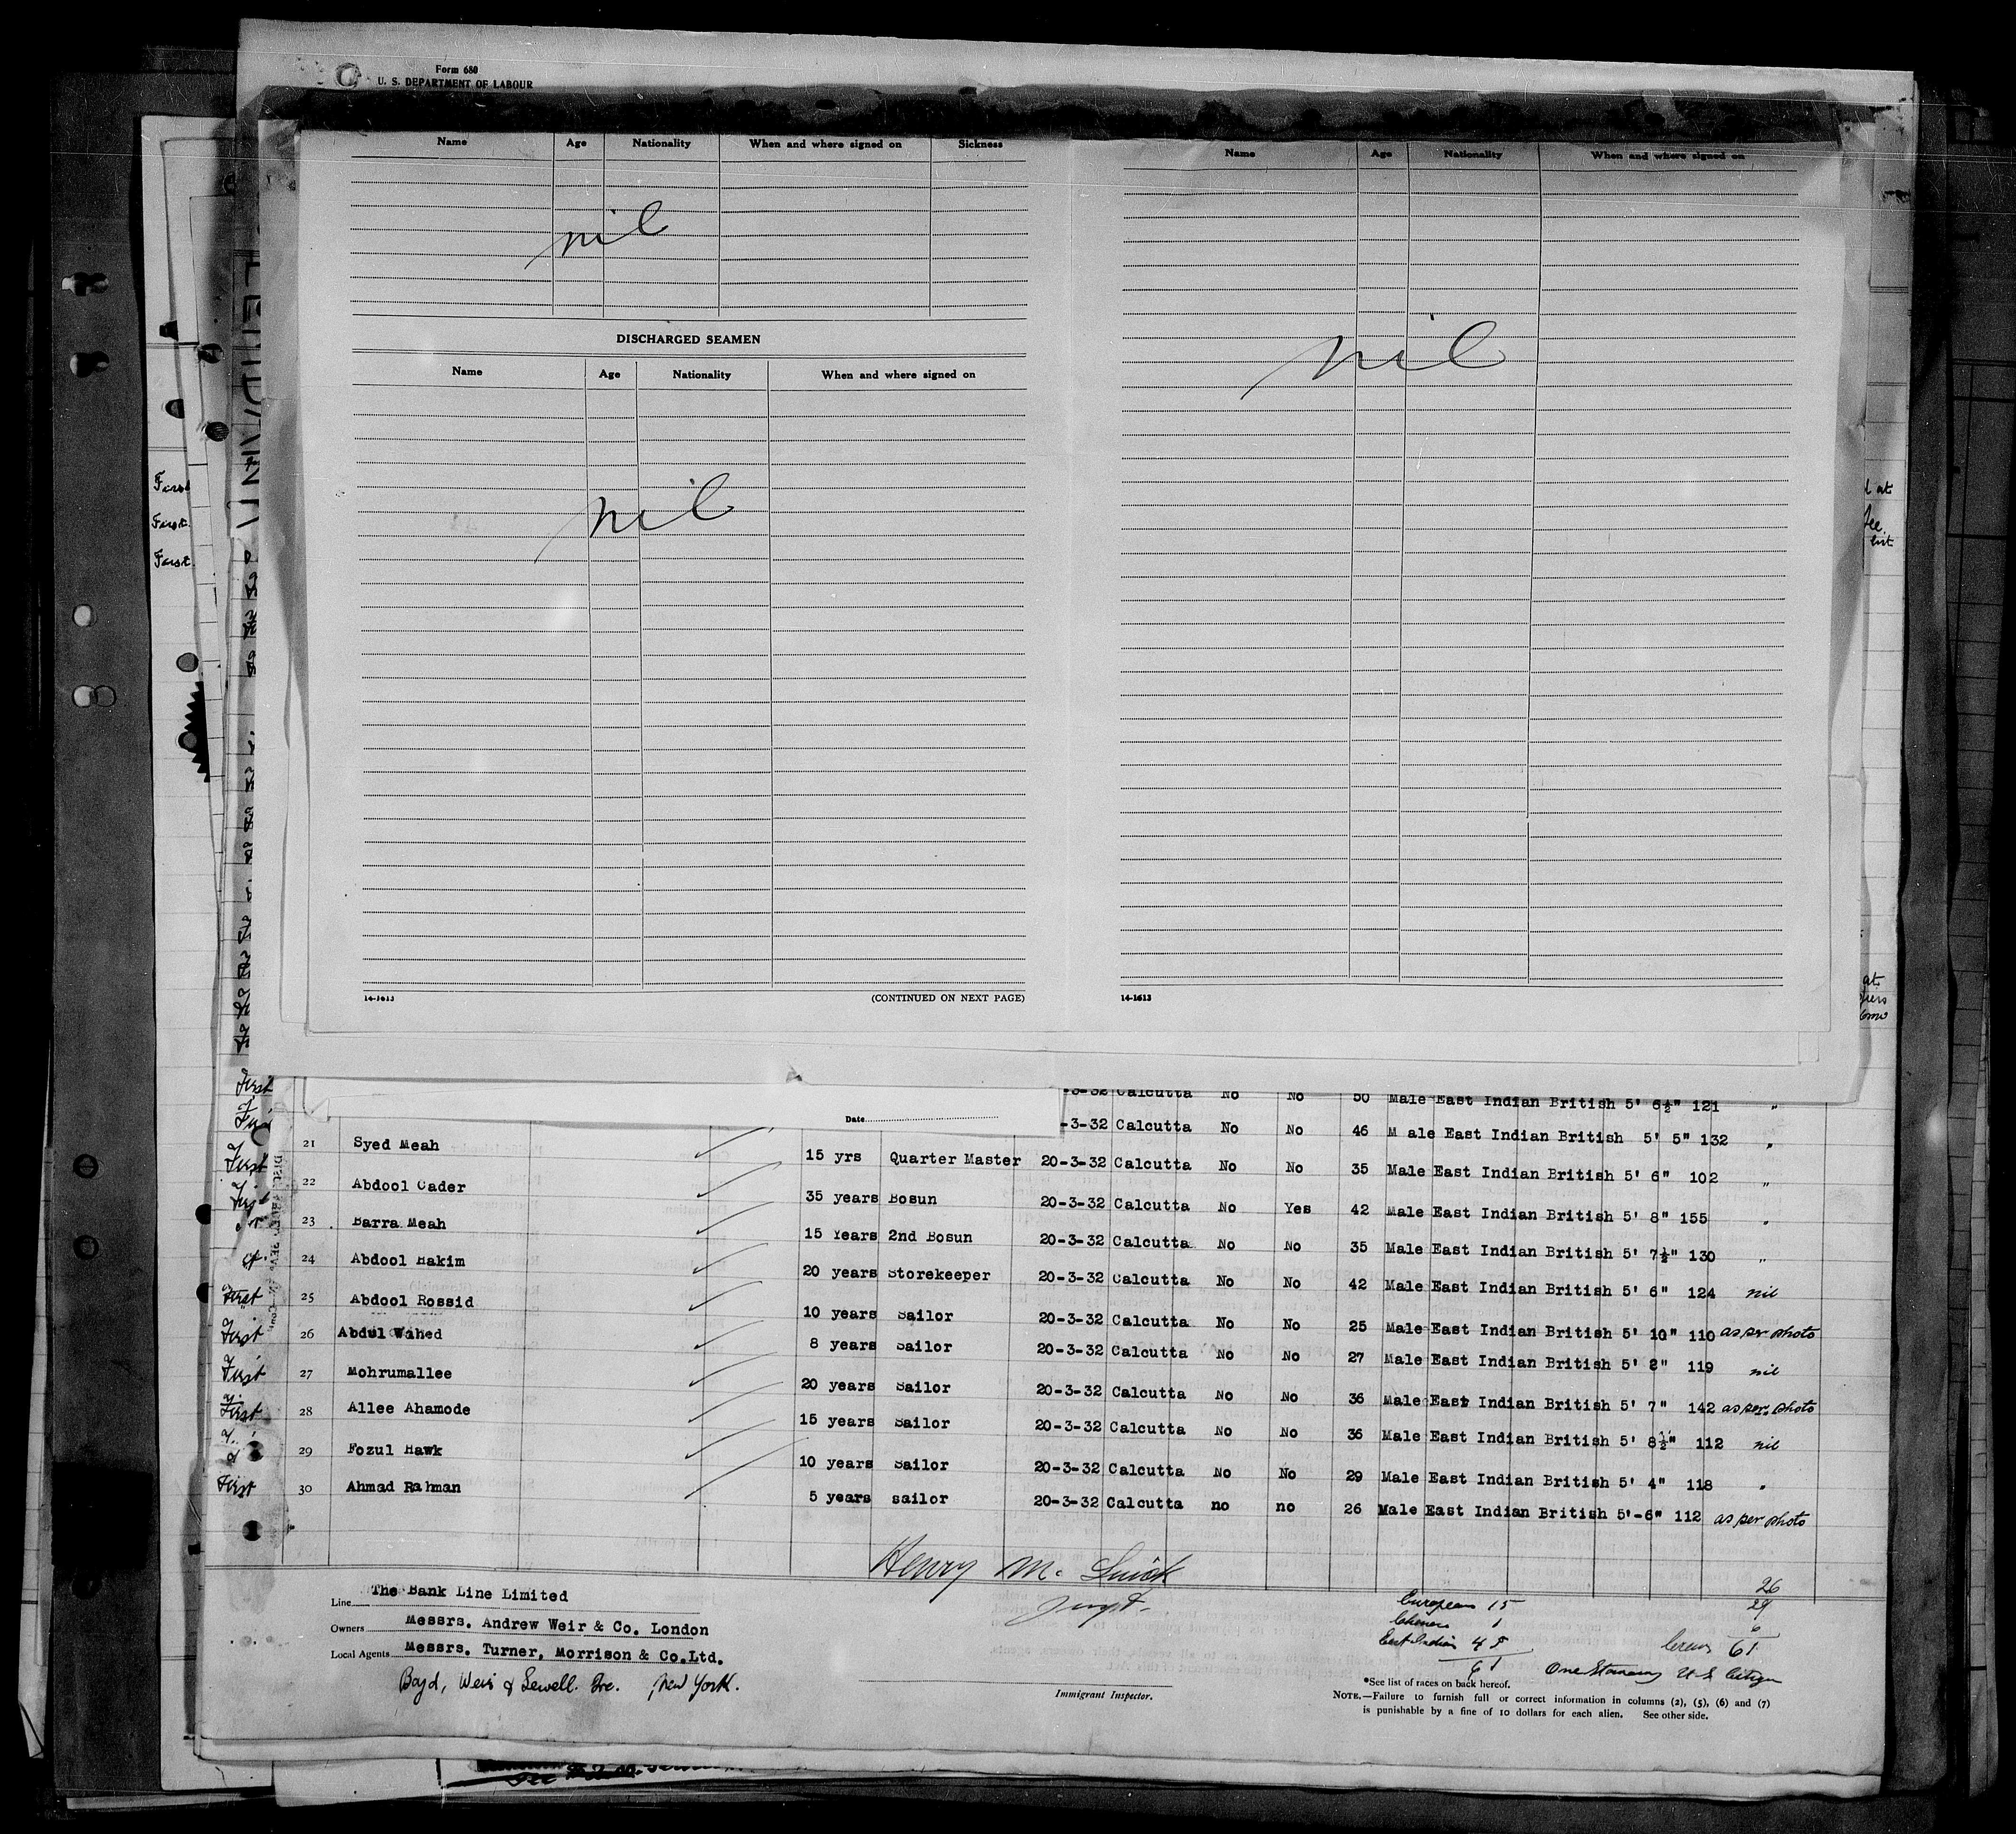 Form 680
U. S. DEPARTMENT OF LABOUR
Name Age Nationality When and where signed on Sickness
nil
DISCHARGED SEAMEN
Name Age Nationality When and where signed on
nil
14-1613 (CONTINUED ON NEXT PAGE)
Name Age Nationality When and where signed on
nil
14-1613
First
First
First
Date
-3-32 Calcutta No No 50 Male East Indian British 5' 6½" 121 "
-3-32 Calcutta No No 46 M ale East Indian British 5' 5" 132 "
First 21 Syed Meah 15 yrs Quarter Master 20-3-32 Calcutta No No 35 Male East Indian British 5' 6" 102 "
22 Abdool Cader 35 years Bosun 20-3-32 Calcutta No Yes 42 Male East Indian British 5' 8" 155 "
23 Barra Meah 15 Years 2nd Bosun 20-3-32 Calcutta No No 35 Male East Indian British 5' 7½" 130 "
24 Abdool Hakim 20 years Storekeeper 20-3-32 Calcutta No No 42 Male East Indian British 5' 6" 124 nil
First 25 Abdool Rossid 10 years Sailor 20-3-32 Calcutta No No 25 Male East Indian British 5' 10" 110 as per photo
First 26 Abdul Wahed 8 years Sailor 20-3-32 Calcutta No No 27 Male East Indian British 5' 2" 119 nil
First 27 Mohrumallee 20 years Sailor 20-3-32 Calcutta No No 36 Male East Indian British 5' 7" 142 as per photo
First 28 Allee Ahamode 15 years Sailor 20-3-32 Calcutta No No 36 Male East Indian British 5' 8½" 112 nil
29 Fozul Hawk 10 years Sailor 20-3-32 Calcutta No No 29 Male East Indian British 5' 4" 118 "
First 30 Ahmad Rahman 5 years sailor 20-3-32 Calcutta no no 26 Male East Indian British 5'-6" 112 as per photo
Henry M.
Line The Bank Line Limited
Owners Messrs. Andrew Weir & Co. London
Local Agents Messrs. Turner, Morrison & Co.Ltd.
Boyd, Weir & Sewell. Inc. New York.
Immigrant Inspector.
Europeans 15
Chinese 1
East Indian 45
61
26
29
6
Crew 61
One Stowaway U S Citizen
*See list of races on back hereof.
NOTE.—Failure to furnish full or correct information in columns (2), (5), (6) and (7)
is punishable by a fine of 10 dollars for each alien. See other side.